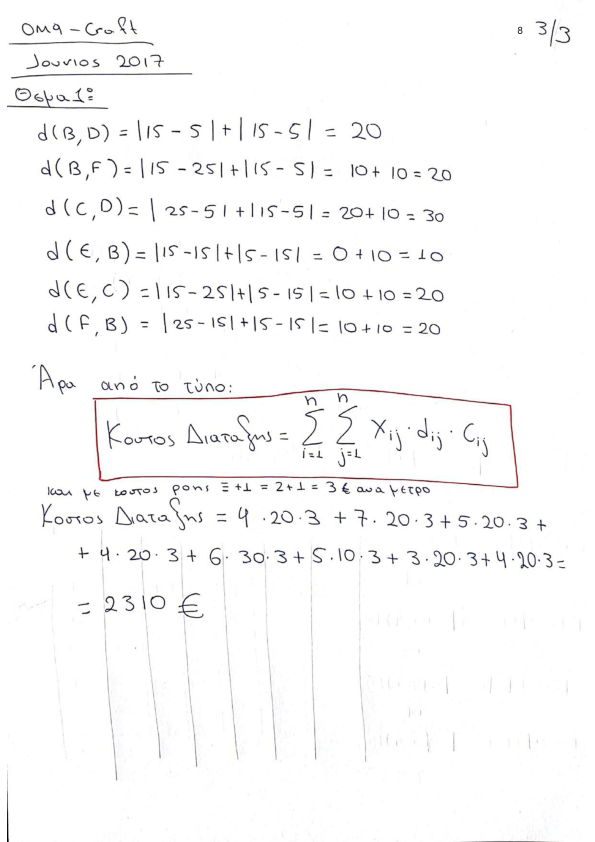 ΟΜΑ - Craft
8 3/3
Ιουνιος 2017
Θεμα 1º
d(B,D) = |15 - 5| + |15 - 5| = 20
d(B,F) = |15 - 25| + |15 - 5| = 10 + 10 = 20
d(C,D) = |25 - 5| + |15 - 5| = 20 + 10 = 30
d(E,B) = |15 - 15| + |5 - 15| = 0 + 10 = 10
d(E,C) = |15 - 25| + |5 - 15| = 10 + 10 = 20
d(F,B) = |25 - 15| + |5 - 15| = 10 + 10 = 20
Άρα από το τύπο:
Κοστος Διαταξης = Σ_{i=1}^{n} Σ_{j=1}^{n} X_{ij} · d_{ij} · C_{ij}
και με κοστος ροης Ξ + 1 = 2 + 1 = 3 € ανα μετρο
Κοστος Διαταξης = 4 · 20 · 3 + 7 · 20 · 3 + 5 · 20 · 3 +
+ 4 · 20 · 3 + 6 · 30 · 3 + 5 · 10 · 3 + 3 · 20 · 3 + 4 · 20 · 3 =
= 2310 €